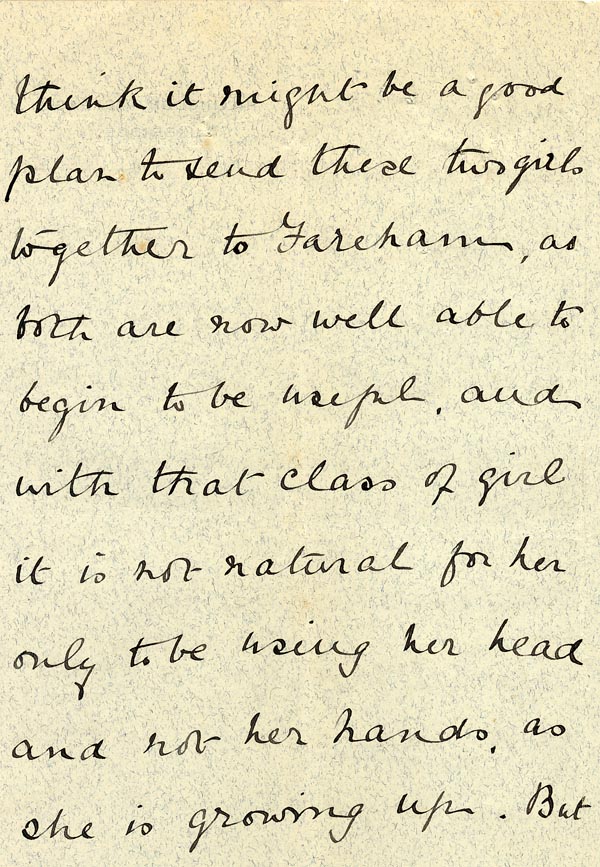 think it might be a good
plan to send these two girls
together to Fareham, as
both are now well able to
begin to be useful, and
with that class of girl
it is not natural for her
only to be using her head
and not her hands, as
she is growing up. But